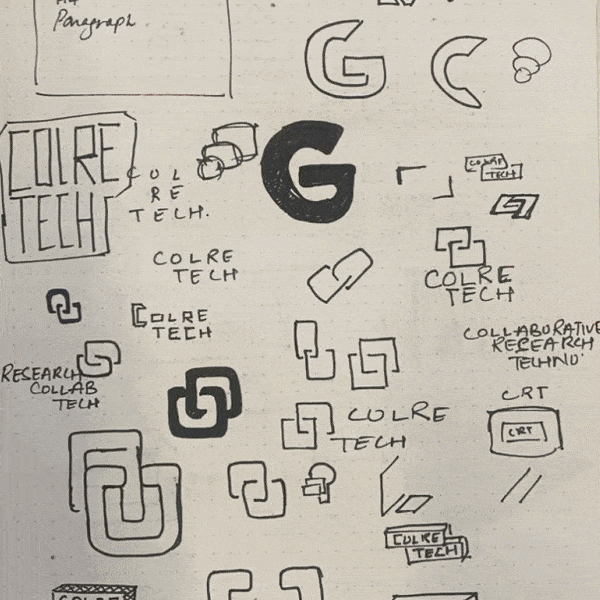 Paragraph
G
C
COLRE
TECH
COL
RE
TECH.
G
COLRE
TECH
COLRE
TECH
COLRE
TECH
COLRE
TECH
COLLABORATIVE
RESEARCH
TECHNO.
RESEARCH
COLLAB
TECH
CRT
CRT
COLRE
TECH
COLRE
TECH